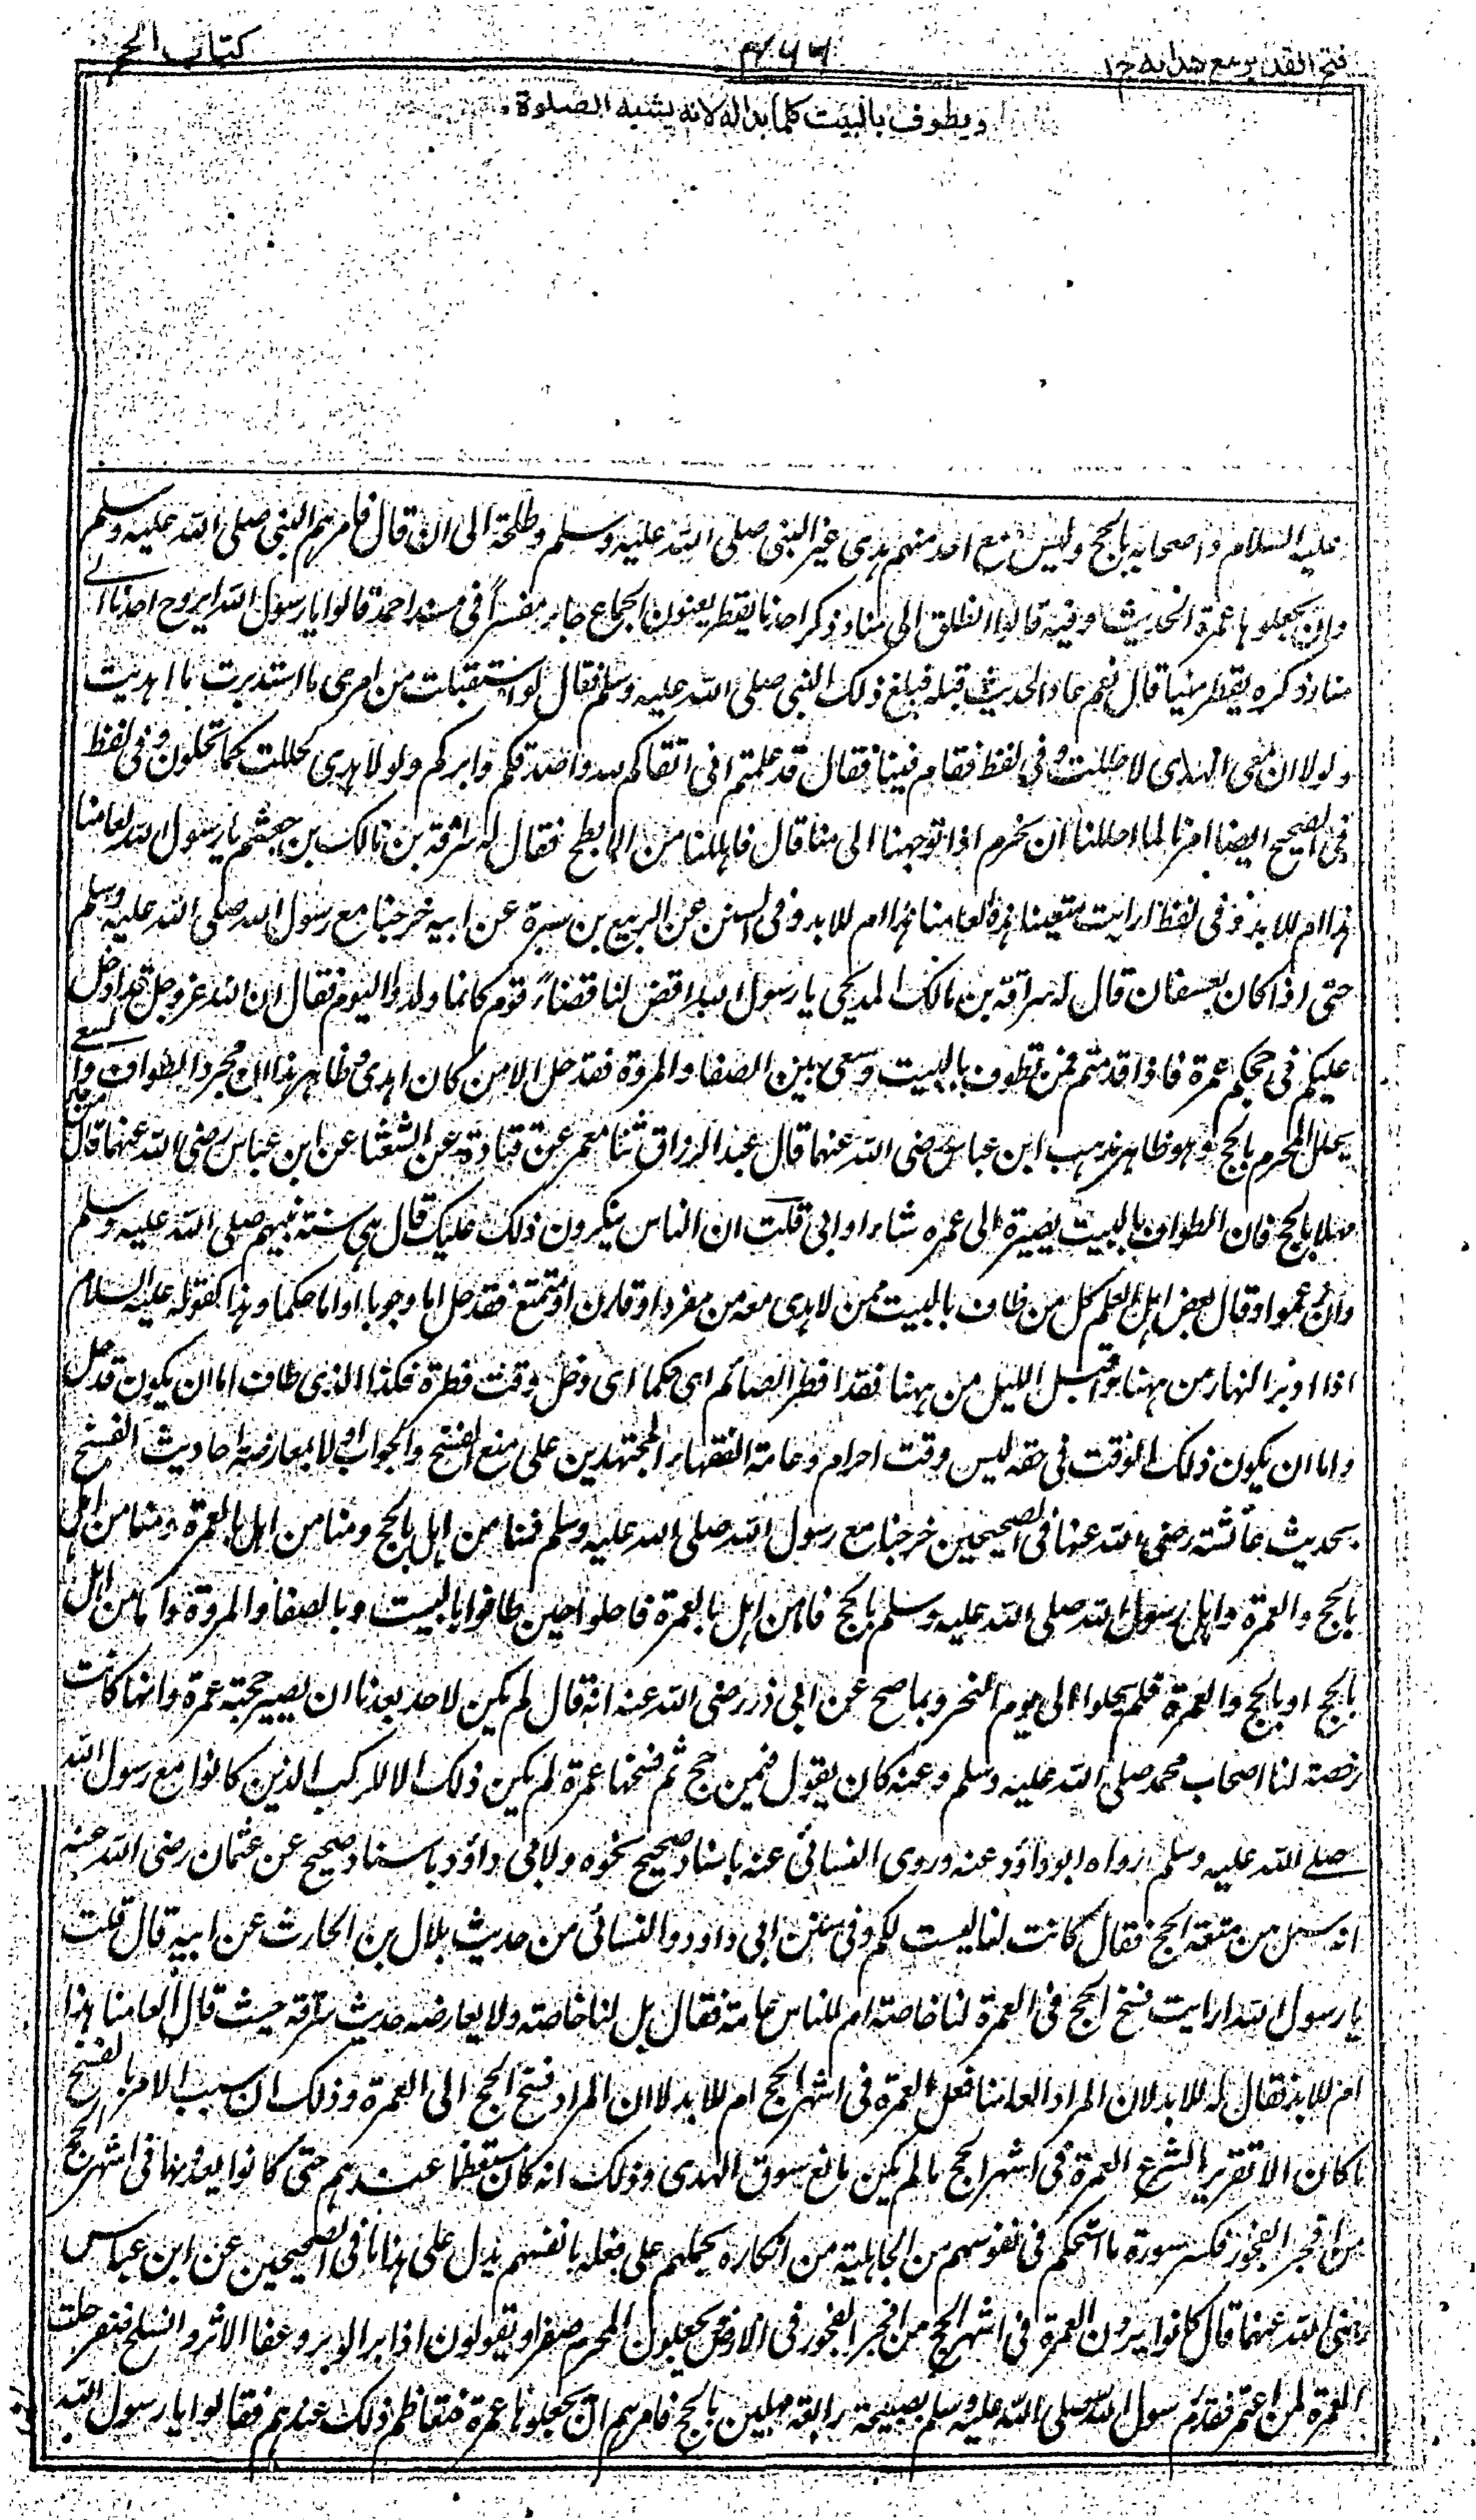 فتح القدير مع هدايه ج١
٣٦٦
كتاب الحج
ويطوف بالبيت كلما بدا له لانه يشبه الصلوة
عليه السلام واصحابه بالحج وليس مع احد منهم هدى غير النبى صلى الله عليه وسلم وطلحة الى ان قال فامرهم النبى صلى الله عليه وسلم
وان يجعلوها عمرة الحديث وفيه قالوا ننطلق الى منا وذكر احدنا يقطر يعنون الجماع جاء مفسراً فى مسند احمد قالوا يا رسول الله ايروح احدنا الى
منا وذكره يقطر منيا قال نعم عاد الحديث قبله فبلغ ذلك النبى صلى الله عليه وسلم فقال لو استقبلت من امرى ما استدبرت ما اهديت
ولولا ان معى الهدى لاحللت وفى لفظ فقام فينا فقال قد علمتم انى اتقاكم لله واصدقكم وابركم ولولا هدى لحللت كما تحلون وفى لفظ
فى الصحيح ايضا امرنا لما احللنا ان نحرم اذا توجهنا الى منا قال فاهللنا من الابطح فقال له سراقة بن مالك بن جعشم يا رسول الله لعامنا
هذا ام للابد وفى لفظ ارايت متعتنا هذه لعامنا هذا ام للابد وفى السنن عن الربيع بن سبرة عن ابيه خرجنا مع رسول الله صلى الله عليه وسلم
حتى اذا كان بعسفان قال له سراقة بن مالك المدلجى يا رسول الله اقض لنا قضاء قوم كانما ولدوا اليوم فقال ان الله عز وجل قد ادخل
عليكم فى حجكم عمرة فاذا قدمتم فمن تطوف بالبيت وسعى بين الصفا والمروة فقد حل الا من كان اهدى وظاهر هذا ان مجرد الطواف والسعى
يحلل المحرم بالحج وهو ظاهر مذهب ابن عباس رضى الله عنهما قال عبد الرزاق ثنا معمر عن قتادة عن الشعثا عن ابن عباس رضى الله عنهما قال من جاء
مهلا بالحج فان الطواف بالبيت يصيره الى عمره شاء او ابى قلت ان الناس ينكرون ذلك عليك قال هى سنة نبيهم صلى الله عليه وسلم
وان زعموا وقال بعض اهل العلم كل من طاف بالبيت ممن لا هدى معه من مفرد او قارن او متمتع فقد حل اما وجوبا واما حكما وهذا كقوله عليه السلام
اذا ادبر النهار من ههنا واقبل الليل من ههنا فقد افطر الصائم اى حكما اى دخل وقت فطره فكذا الذى طاف اما ان يكون قد حل
واما ان يكون ذلك الوقت فى حقه ليس وقت احرام وعامة الفقهاء المجتهدين على منع الفسخ والجواب اولا بمعارضة احاديث الفسخ
بحديث عائشة رضى الله عنها فى الصحيحين خرجنا مع رسول الله صلى الله عليه وسلم فمنا من اهل بالحج ومنا من اهل بالعمرة ومنا من اهل
بالحج والعمرة واهل رسول الله صلى الله عليه وسلم بالحج فاما من اهل بالعمرة فاحلوا حين طافوا بالبيت وبالصفا والمروة واما من اهل
بالحج او بالحج والعمرة فلم يحلوا الى يوم النحر وبما صح عن ابى ذر رضى الله عنه انه قال لم يكن لاحد بعدنا ان يصير حجته عمرة وانها كانت
رخصة لنا اصحاب محمد صلى الله عليه وسلم وعنه كان يقول فيمن حج ثم فسخها عمرة لم يكن ذلك الا للركب الذين كانوا مع رسول الله
صلى الله عليه وسلم رواه ابو داؤد عنه وروى النسائى عنه باسناد صحيح نحوه ولابى داؤد باسناد صحيح عن عثمان رضى الله عنه
انه سئل من متعة الحج فقال كانت لنا ليست لكم وفى سنن ابى داود والنسائى من حديث بلال بن الحارث عن ابيه قال قلت
يا رسول الله ارايت فسخ الحج فى العمرة لنا خاصة ام للناس عامة فقال بل لنا خاصة ولا يعارضه حديث سراقة حيث قال العامنا هذا
ام للابد فقال له للابد لان المراد العامنا فعل العمرة فى اشهر الحج ام للابد لا ان المراد فسخ الحج الى العمرة وذلك ان سبب الامر بالفسخ
ما كان الا تقرير الشرع العمرة فى اشهر الحج ما لم يكن مانع سوق الهدى وذلك انه كان مستعظما عندهم حتى كانوا يعدونها فى اشهر الحج
من افجر الفجور فكسر سورة ما استحكم فى نفوسهم من الجاهلية من انكاره بحملهم على فعله بانفسهم يدل على هذا ما فى الصحيحين عن ابن عباس
رضى الله عنهما قال كانوا يرون العمرة فى اشهر الحج من افجر الفجور فى الارض ويجعلون المحرم صفرا ويقولون اذا برا الدبر وعفا الاثر وانسلخ صفر حلت
العمرة لمن اعتمر فقدم رسول الله صلى الله عليه وسلم بصبيحة رابعة مهلين بالحج فامرهم ان يجعلوها عمرة فتعاظم ذلك عندهم فقالوا يا رسول الله